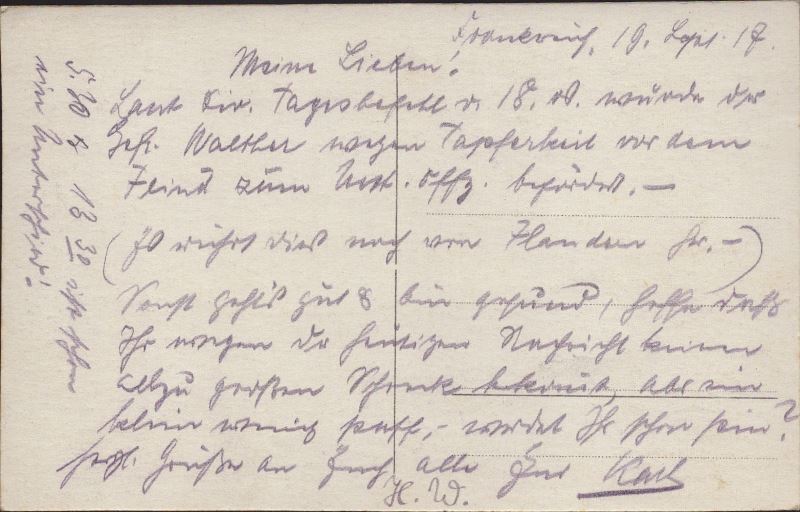 Frankreich, 19. Sept. 17.
Meine Lieben!
Laut Div. Tagesbefehl v. 18. ds. wurde der
Gefr. Walther wegen Tapferkeit vor dem
Feind zum Unt. Offz. befördert. —
(Es rührt dies noch von Flandern her. —)
Sonst geht's gut & bin gesund, hoffe dass
Ihr wegen der heutigen Nachricht keinen
allzu großen Schreck bekommt, aber ein
klein wenig paff, - werdet Ihr schon sein?
herzl. Grüße an Euch alle Euer Karl
H. W.
5.20 & 13 30 ist schon
ein Unterschied!